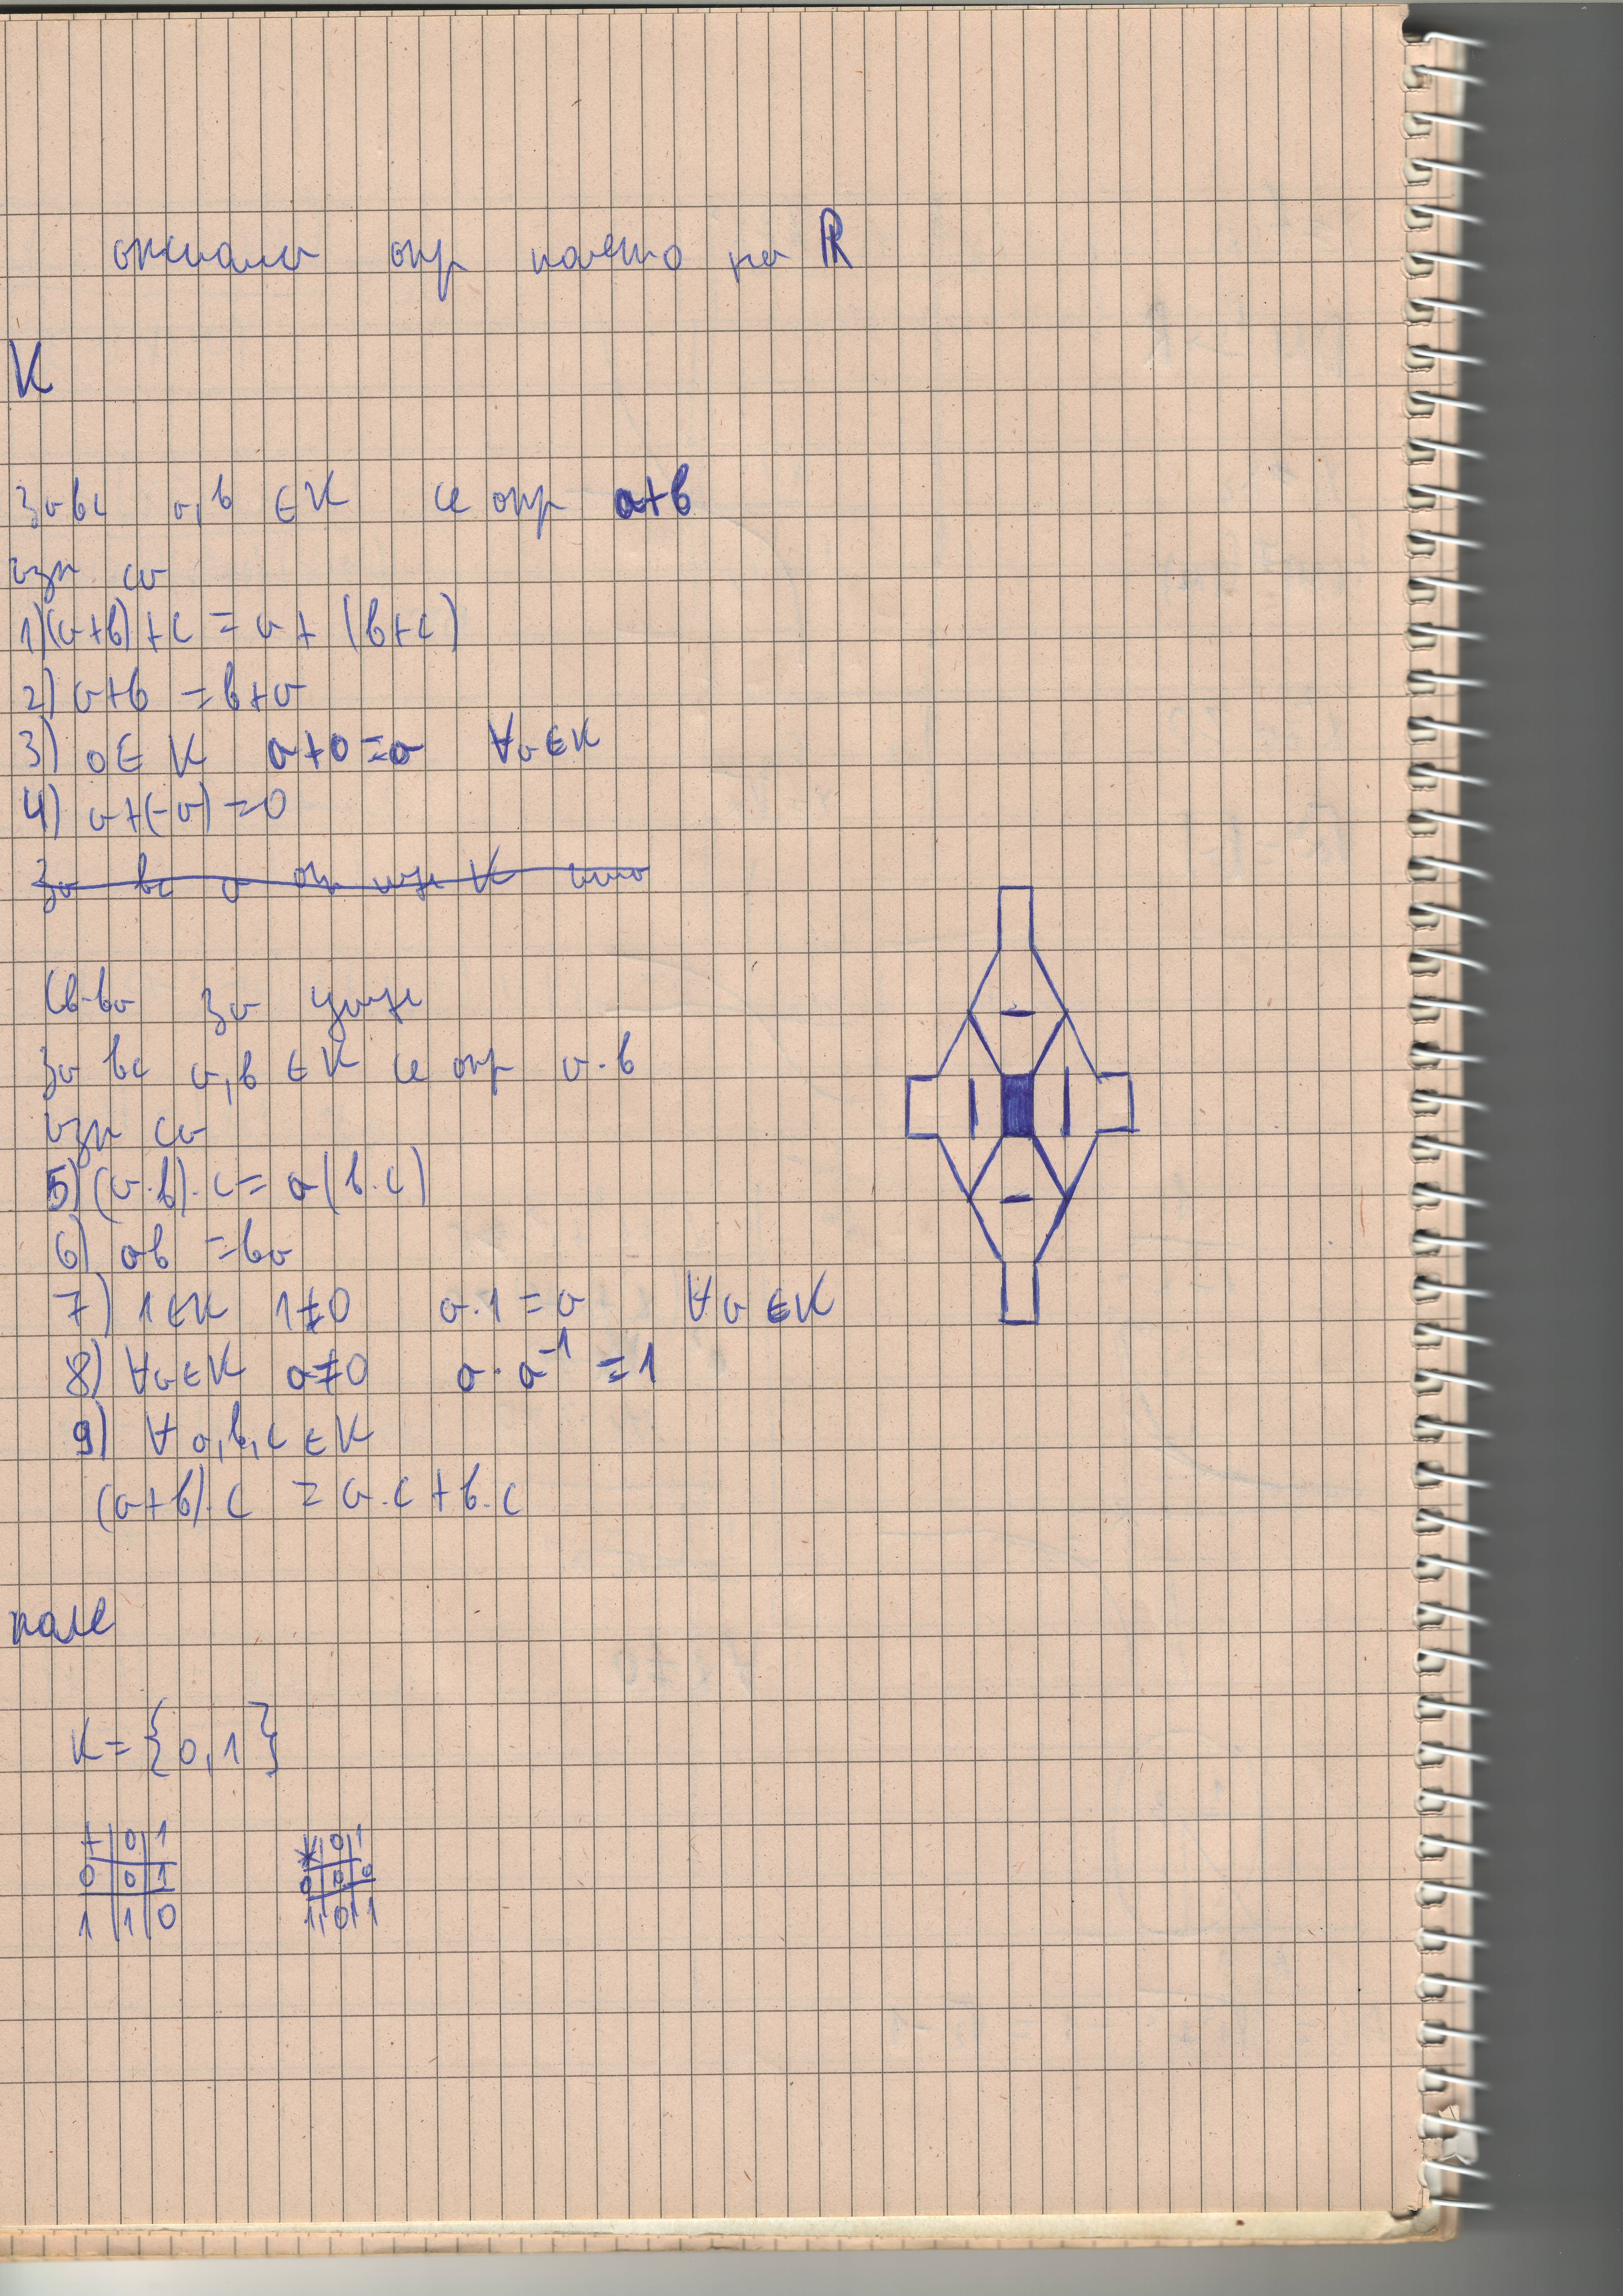 аксиома опр полето на ℝ
K
За вс a, b ∈ K се опр a+b
изп са
1) (a+b)+c = a+(b+c)
2) a+b = b+a
3) 0 ∈ K a+0=a ∀a∈K
4) a+(-a)=0
За вс a опр K
Св-ва за умн
За вс a, b ∈ K се опр a·b
изп са
5) (a·b)·c = a(b·c)
6) ab = ba
7) 1∈K 1≠0 a·1=a ∀a∈K
8) ∀a∈K a≠0 a·a⁻¹=1
9) ∀a,b,c∈K
(a+b)·c = a·c+b·c
поле
K={0,1}
+ 0 1 * 0 1
0 0 1 0 0 0
1 1 0 1 0 1